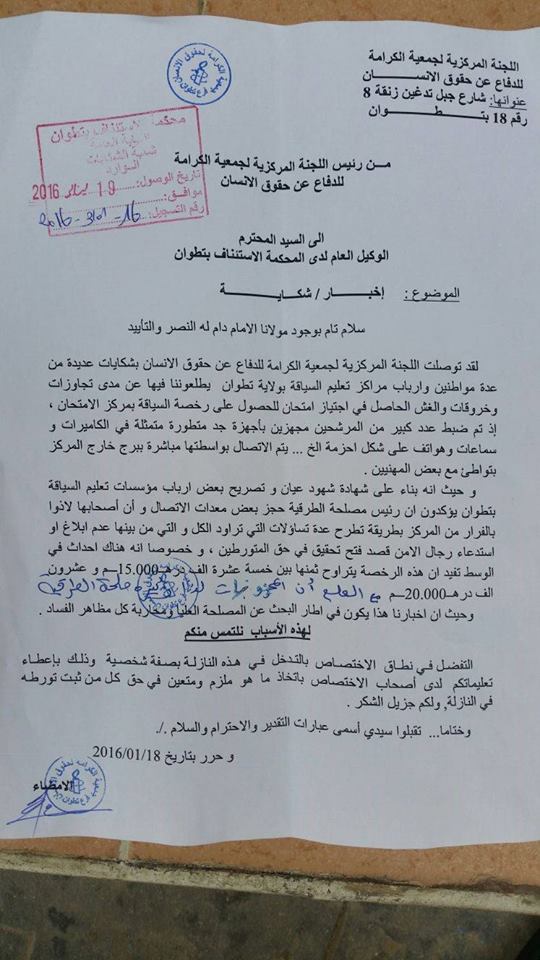 اللجنة المركزية لجمعية الكرامة
للدفاع عن حقوق الانسان
عنوانها: شارع جبل تدغين زنقة 8
رقم 18 بتطوان
جمعية الكرامة للدفاع عن حقوق الانسان
فرع تطوان
محكمة الاستئناف بتطوان
النيابة العامة
شعبة الشكايات
تاريخ الوصول: 19 يناير 2016
موافق:
رقم التسجيل: 16-3101-2016
من رئيس اللجنة المركزية لجمعية الكرامة
للدفاع عن حقوق الانسان
الى السيد المحترم
الوكيل العام لدى المحكمة الاستئناف بتطوان
الموضوع: إخبار / شكاية
سلام تام بوجود مولانا الامام دام له النصر والتأييد
لقد توصلت اللجنة المركزية لجمعية الكرامة للدفاع عن حقوق الانسان بشكايات عديدة من
عدة مواطنين وارباب مراكز تعليم السياقة بولاية تطوان يطلعوننا فيها عن مدى تجاوزات
وخروقات والغش الحاصل في اجتياز امتحان للحصول على رخصة السياقة بمركز الامتحان ،
إذ تم ضبط عدد كبير من المرشحين مجهزين بأجهزة جد متطورة متمثلة في الكاميرات و
سماعات وهواتف على شكل احزمة الخ ... يتم الاتصال بواسطتها مباشرة ببرج خارج المركز
بتواطئ مع بعض المهنيين .
و حيث انه بناء على شهادة شهود عيان و تصريح بعض ارباب مؤسسات تعليم السياقة
بتطوان يؤكدون ان رئيس مصلحة الطرقية حجز بعض معدات الاتصال و أن أصحابها لاذوا
بالفرار من المركز بطريقة تطرح عدة تساؤلات التي تراود الكل و التي من بينها عدم ابلاغ او
استدعاء رجال الامن قصد فتح تحقيق في حق المتورطين ، و خصوصا انه هناك احداث في
الوسط تفيد ان هذه الرخصة يتراوح ثمنها بين خمسة عشرة الف درهـ15.000ــم و عشرون
الف درهـ20.000ــم مع العلم أن المحجوزات
وحيث ان اخبارنا هذا يكون في اطار البحث عن المصلحة العليا ومحاربة كل مظاهر الفساد .
لهذه الأسباب نلتمس منكم
التفضل في نطاق الاختصاص بالتدخل في هذه النازلة بصفة شخصية وذلك بإعطاء
تعليماتكم لدى أصحاب الاختصاص باتخاذ ما هو ملزم ومتعين في حق كل من ثبت تورطه
في النازلة, ولكم جزيل الشكر .
وختاما... تقبلوا سيدي أسمى عبارات التقدير والاحترام والسلام ./.
و حرر بتاريخ 2016/01/18
الامضاء
جمعية الكرامة للدفاع عن حقوق الانسان
فرع تطوان